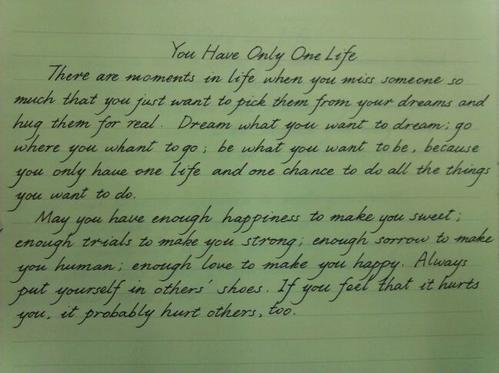 You Have Only One Life
There are moments in life when you miss someone so
much that you just want to pick them from your dreams and
hug them for real. Dream what you want to dream; go
where you whant to go; be what you want to be, because
you only have one life and one chance to do all the things
you want to do.
May you have enough happiness to make you sweet;
enough trials to make you strong; enough sorrow to make
you human; enough love to make you happy. Always
put yourself in others' shoes. If you feel that it hurts
you, it probably hurt others, too.